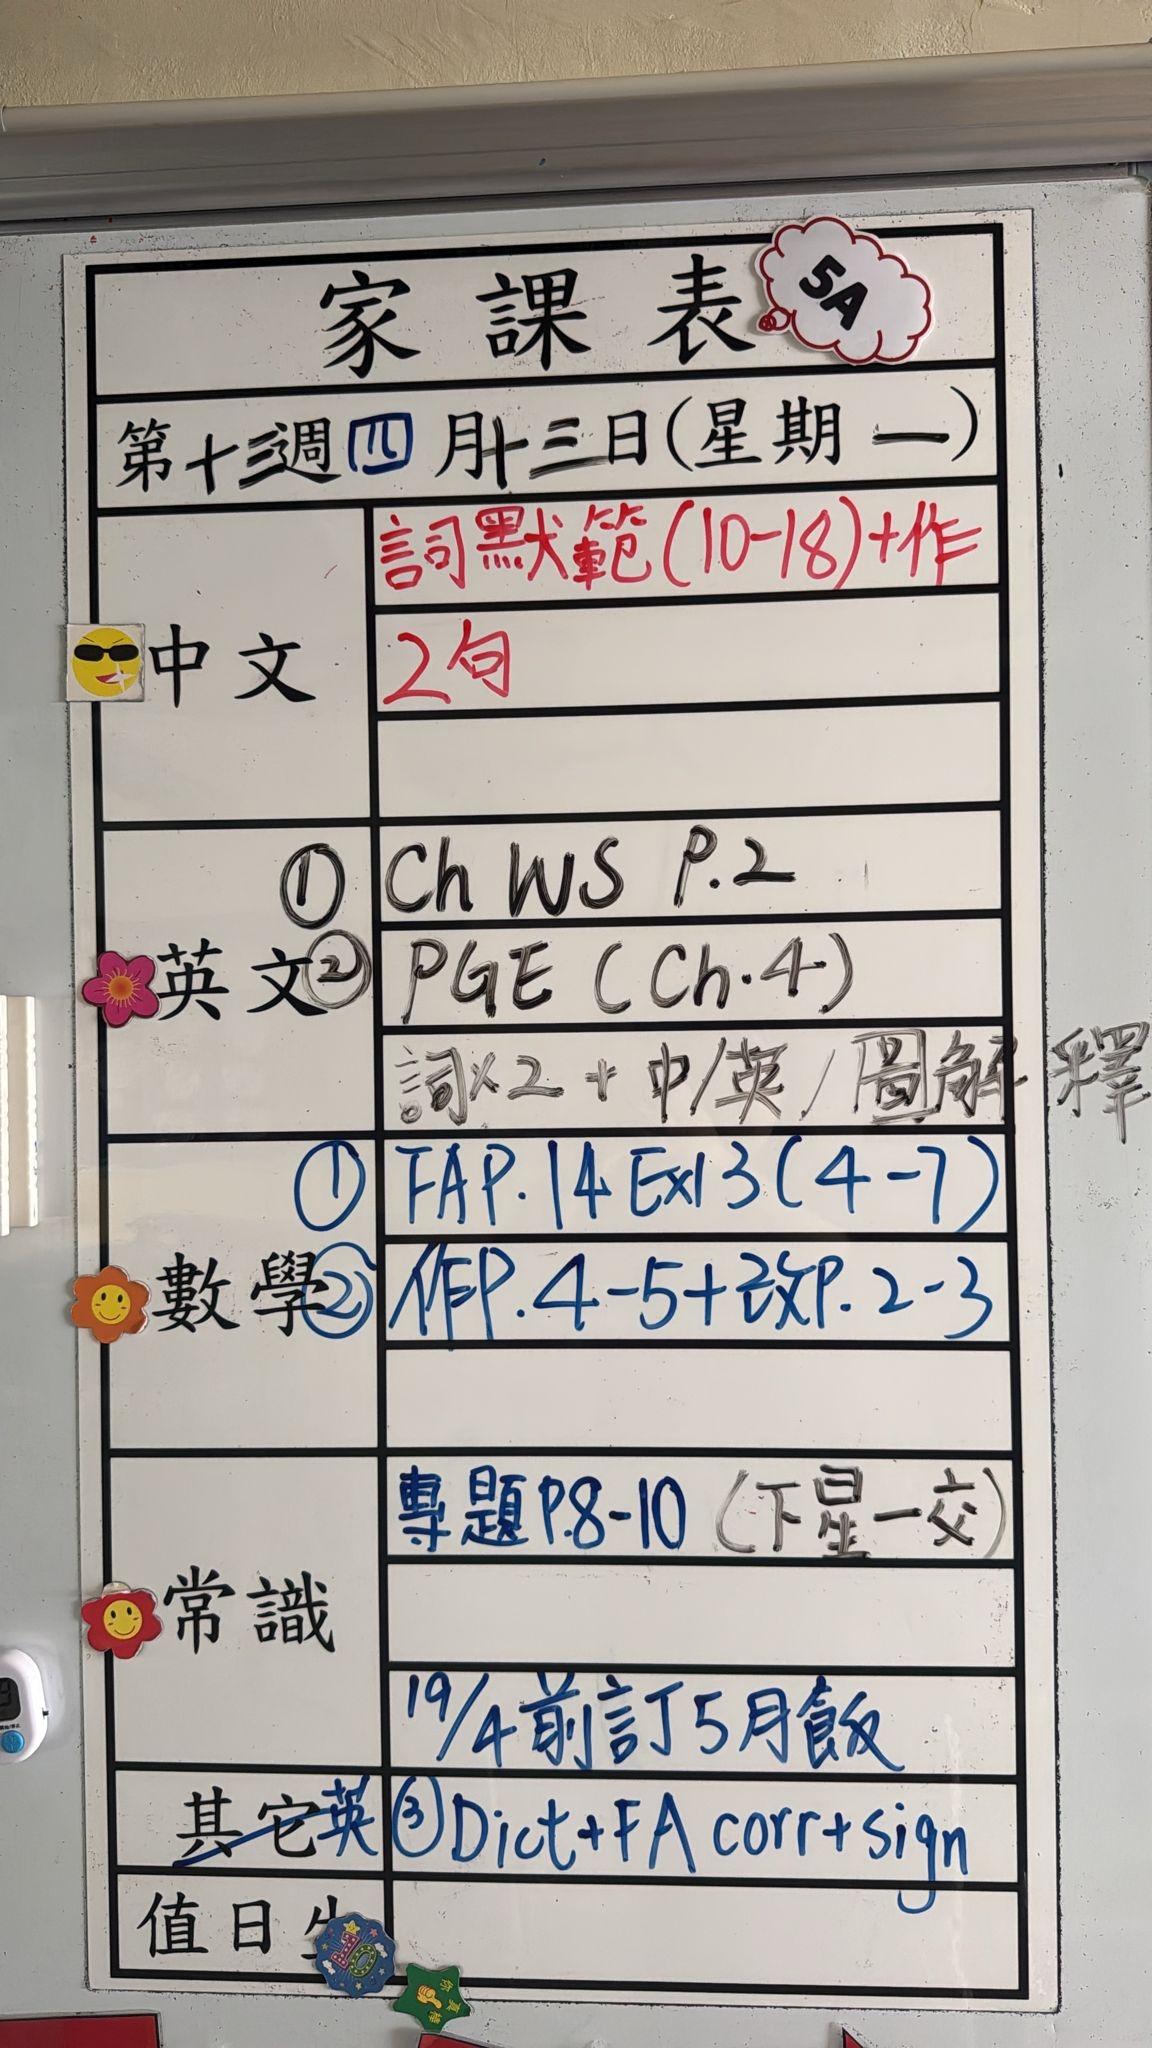 家課表
5A
第十三週四月十三日(星期一)
中文
詞默範(10-18)+作
2句
英文
① Ch WS P.2
② PGE (Ch.4)
詞x2+中/英/圖解釋
數學
① FA P.14 Ex13(4-7)
② 作P.4-5+改P.2-3
常識
專題P.8-10 (下星一交)
19/4前訂5月飯
其它 英 ③ Dict+FA corr+sign
值日生
你真棒